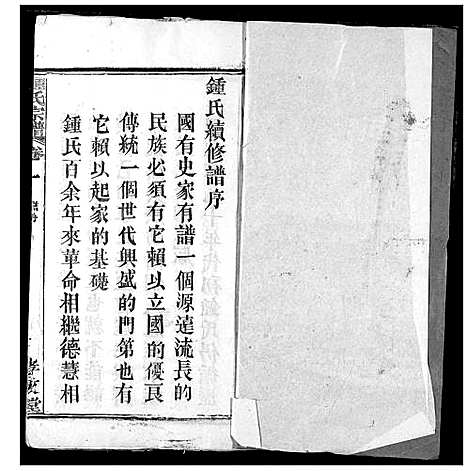 鍾氏續修譜序
國有史家有譜一個源遠流長的
民族必須有它賴以立國的優良
傳統一個世代興盛的門第也有
它賴以起家的基礎
鍾氏百余年來革命相繼德慧相
鍾氏宗譜
卷一